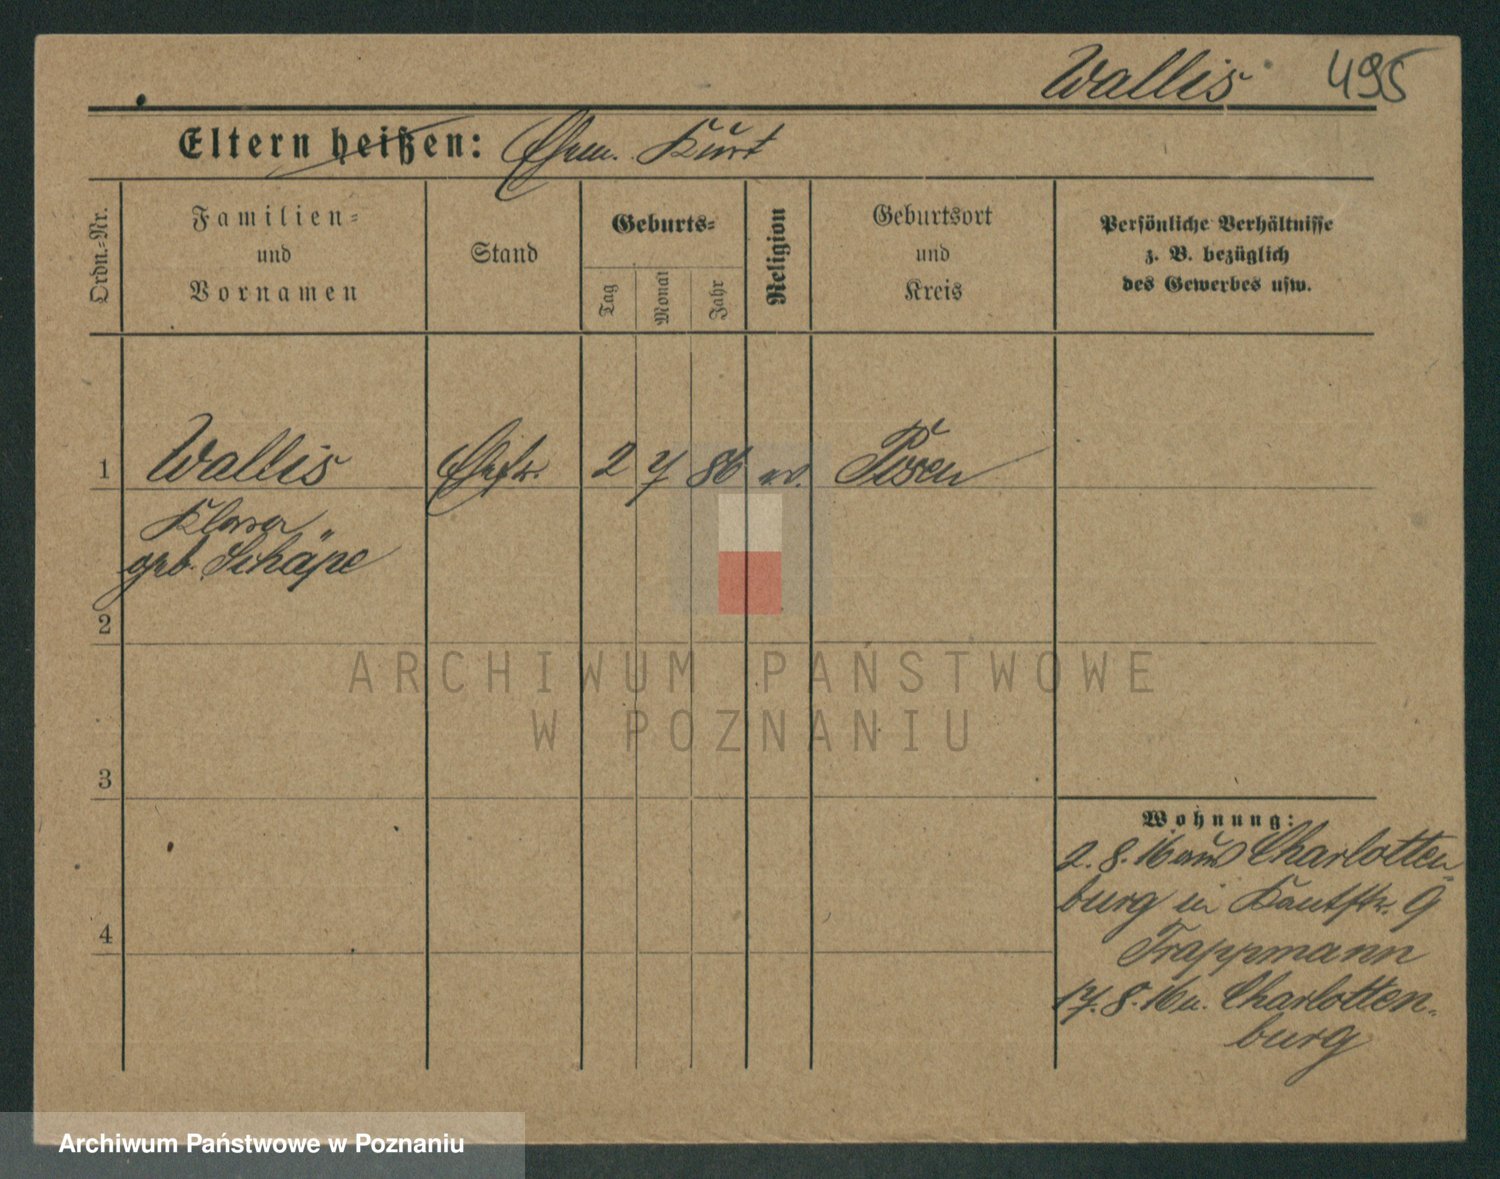 Wallis 495
Eltern heißen: Ehem. Kurt
Ordn.=Nr.
Familien=
und
Vornamen
Stand
Geburts=
Tag
Monat
Jahr
Religion
Geburtsort
und
Kreis
Persönliche Verhältnisse
z. B. bezüglich
des Gewerbes usw.
1 Wallis Ehefr. 2 7 86 ev. Posen
Klara
geb. Schäpe
2
ARCHIWUM PAŃSTWOWE
W POZNANIU
3
Wohnung:
2. 8. 16 aus Charlotten-
burg in Kantstr. 9
4
Trappmann
17. 8. 16 n. Charlotten-
burg
Archiwum Państwowe w Poznaniu